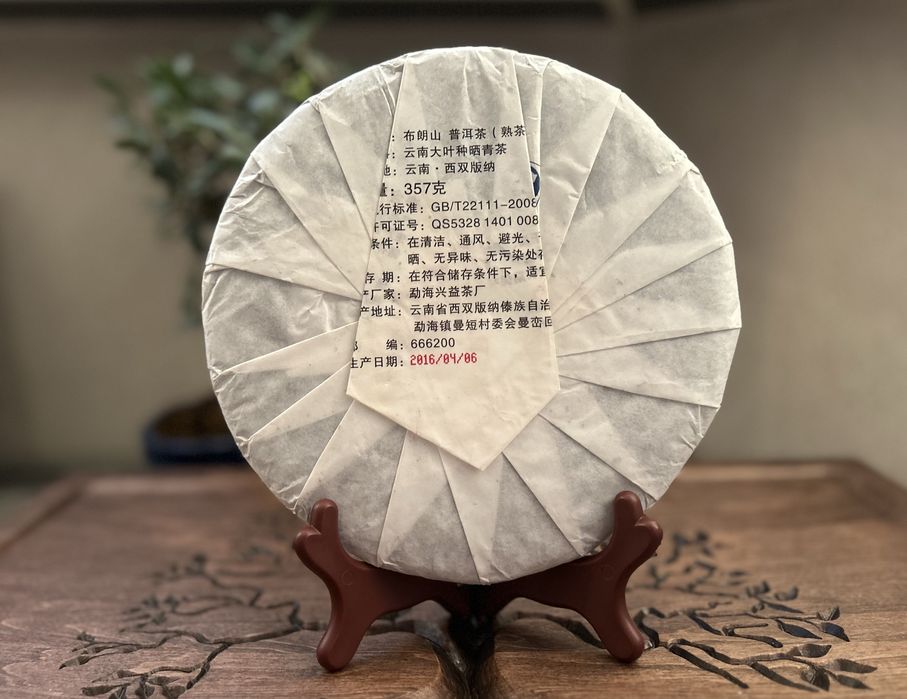 ：布朗山 普洱茶（熟茶
：云南大叶种晒青茶
地：云南·西双版纳
量：357克
行标准：GB/T22111-2008
可证号：QS5328 1401 008
条件：在清洁、通风、避光、
晒、无异味、无污染处存
存 期：在符合储存条件下，适宜
产厂家：勐海兴益茶厂
产地址：云南省西双版纳傣族自治
勐海镇曼短村委会曼峦回
编：666200
生产日期：2016/04/06